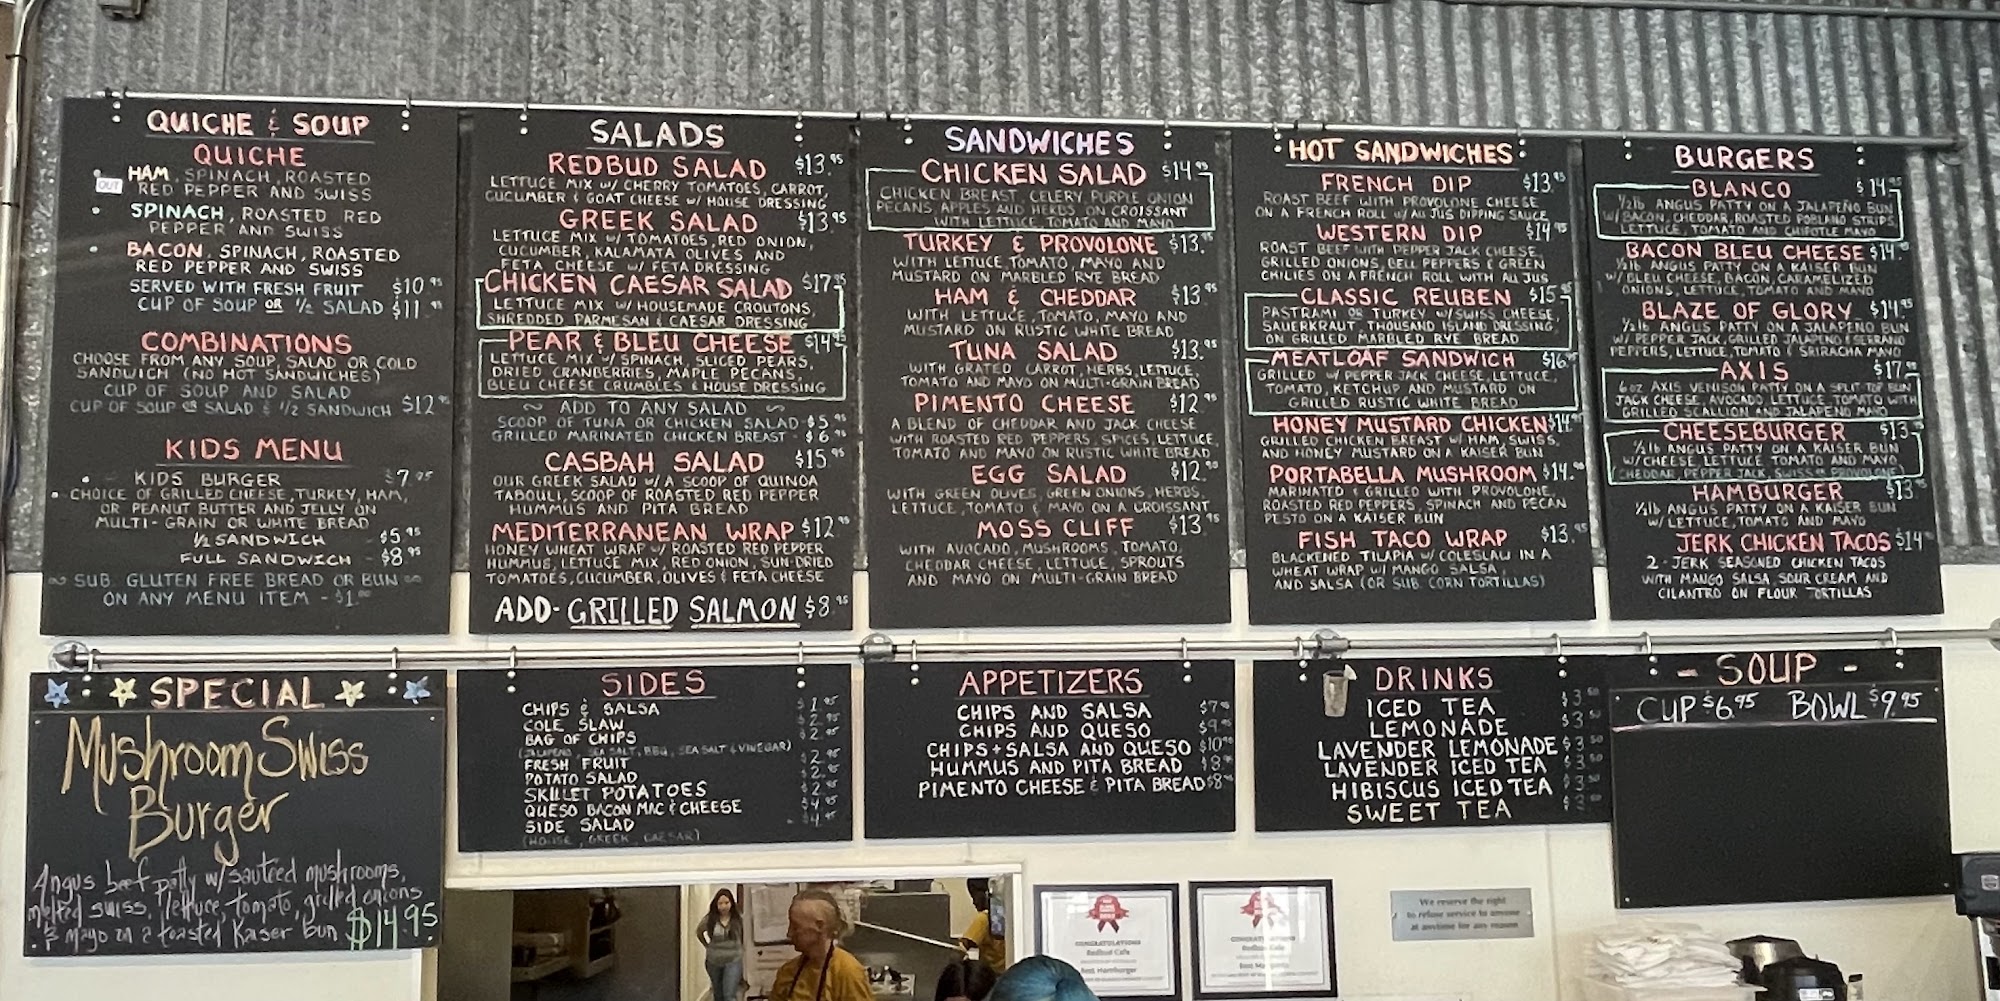 QUICHE & SOUP
QUICHE
HAM, SPINACH, ROASTED
RED PEPPER AND SWISS
OUT
SPINACH, ROASTED RED
PEPPER AND SWISS
BACON, SPINACH, ROASTED
RED PEPPER AND SWISS
SERVED WITH FRESH FRUIT $10.95
CUP OF SOUP OR 1/2 SALAD $11.95
COMBINATIONS
CHOOSE FROM ANY SOUP, SALAD OR COLD
SANDWICH (NO HOT SANDWICHES)
CUP OF SOUP AND SALAD
CUP OF SOUP OR SALAD & 1/2 SANDWICH $12.95
KIDS MENU
KIDS BURGER $7.95
CHOICE OF GRILLED CHEESE, TURKEY, HAM,
OR PEANUT BUTTER AND JELLY ON
MULTI-GRAIN OR WHITE BREAD
1/2 SANDWICH - $5.95
FULL SANDWICH - $8.95
SUB. GLUTEN FREE BREAD OR BUN
ON ANY MENU ITEM - $1.00
SALADS
REDBUD SALAD $13.95
LETTUCE MIX W/ CHERRY TOMATOES, CARROT,
CUCUMBER & GOAT CHEESE W/ HOUSE DRESSING
GREEK SALAD $13.95
LETTUCE MIX W/ TOMATOES, RED ONION,
CUCUMBER, KALAMATA OLIVES AND
FETA CHEESE W/ FETA DRESSING
CHICKEN CAESAR SALAD $17.95
LETTUCE MIX W/ HOUSEMADE CROUTONS,
SHREDDED PARMESAN & CAESAR DRESSING
PEAR & BLEU CHEESE $14.95
LETTUCE MIX W/ SPINACH, SLICED PEARS,
DRIED CRANBERRIES, MAPLE PECANS,
BLEU CHEESE CRUMBLES & HOUSE DRESSING
~ ADD TO ANY SALAD ~
SCOOP OF TUNA OR CHICKEN SALAD - $5.95
GRILLED MARINATED CHICKEN BREAST - $6.95
CASBAH SALAD $15.95
OUR GREEK SALAD W/ A SCOOP OF QUINOA
TABOULI, SCOOP OF ROASTED RED PEPPER
HUMMUS AND PITA BREAD
MEDITERRANEAN WRAP $12.95
HONEY WHEAT WRAP W/ ROASTED RED PEPPER
HUMMUS, LETTUCE MIX, RED ONION, SUN-DRIED
TOMATOES, CUCUMBER, OLIVES & FETA CHEESE
ADD - GRILLED SALMON $8.95
SANDWICHES
CHICKEN SALAD $14.95
CHICKEN BREAST, CELERY, PURPLE ONION
PECANS, APPLES AND HERBS ON CROISSANT
WITH LETTUCE, TOMATO AND MAYO
TURKEY & PROVOLONE $13.95
WITH LETTUCE TOMATO, MAYO AND
MUSTARD ON MARBLED RYE BREAD
HAM & CHEDDAR $13.95
WITH LETTUCE, TOMATO, MAYO AND
MUSTARD ON RUSTIC WHITE BREAD
TUNA SALAD $13.95
WITH GRATED CARROT, HERBS, LETTUCE,
TOMATO AND MAYO ON MULTI-GRAIN BREAD
PIMENTO CHEESE $12.95
A BLEND OF CHEDDAR AND JACK CHEESE
WITH ROASTED RED PEPPERS, SPICES, LETTUCE,
TOMATO AND MAYO ON RUSTIC WHITE BREAD
EGG SALAD $12.95
WITH GREEN OLIVES, GREEN ONIONS, HERBS,
LETTUCE, TOMATO & MAYO ON A CROISSANT
MOSS CLIFF $13.95
WITH AVOCADO, MUSHROOMS, TOMATO,
CHEDDAR CHEESE, LETTUCE, SPROUTS
AND MAYO ON MULTI-GRAIN BREAD
HOT SANDWICHES
FRENCH DIP $13.95
ROAST BEEF WITH PROVOLONE CHEESE
ON A FRENCH ROLL W/ AU JUS DIPPING SAUCE
WESTERN DIP $14.95
ROAST BEEF WITH PEPPER JACK CHEESE,
GRILLED ONIONS, BELL PEPPERS & GREEN
CHILIES ON A FRENCH ROLL WITH AU JUS
CLASSIC REUBEN $15.95
PASTRAMI OR TURKEY W/ SWISS CHEESE,
SAUERKRAUT, THOUSAND ISLAND DRESSING,
ON GRILLED MARBLED RYE BREAD
MEATLOAF SANDWICH $16.95
GRILLED W/ PEPPER JACK CHEESE, LETTUCE,
TOMATO, KETCHUP AND MUSTARD ON
GRILLED RUSTIC WHITE BREAD
HONEY MUSTARD CHICKEN $14.95
GRILLED CHICKEN BREAST W/ HAM, SWISS,
AND HONEY MUSTARD ON A KAISER BUN
PORTABELLA MUSHROOM $14.95
MARINATED & GRILLED WITH PROVOLONE,
ROASTED RED PEPPERS, SPINACH AND PECAN
PESTO ON A KAISER BUN
FISH TACO WRAP $13.95
BLACKENED TILAPIA W/ COLESLAW IN A
WHEAT WRAP W/ MANGO SALSA,
AND SALSA (OR SUB. CORN TORTILLAS)
BURGERS
BLANCO $14.95
1/2 lb ANGUS PATTY ON A JALAPEÑO BUN
W/ BACON, CHEDDAR, ROASTED POBLANO STRIPS
LETTUCE, TOMATO AND CHIPOTLE MAYO
BACON BLEU CHEESE $14.95
1/2 lb ANGUS PATTY ON A KAISER BUN
W/ BLEU CHEESE, BACON, CARAMELIZED
ONIONS, LETTUCE, TOMATO AND MAYO
BLAZE OF GLORY $14.95
1/2 lb ANGUS PATTY ON A JALAPEÑO BUN
W/ PEPPER JACK, GRILLED JALAPEÑO & SERRANO
PEPPERS, LETTUCE, TOMATO & SRIRACHA MAYO
AXIS $17.95
6 oz AXIS VENISON PATTY ON A SPLIT TOP BUN
JACK CHEESE, AVOCADO, LETTUCE, TOMATO WITH
GRILLED SCALLION AND JALAPEÑO MAYO
CHEESEBURGER $13.95
1/2 lb ANGUS PATTY ON A KAISER BUN
W/ CHEESE LETTUCE TOMATO AND MAYO
(CHEDDAR, PEPPER JACK, SWISS OR PROVOLONE)
HAMBURGER $13.95
1/2 lb ANGUS PATTY ON A KAISER BUN
W/ LETTUCE, TOMATO AND MAYO
JERK CHICKEN TACOS $14
2 - JERK SEASONED CHICKEN TACOS
WITH MANGO SALSA, SOUR CREAM AND
CILANTRO ON FLOUR TORTILLAS
SPECIAL
Mushroom Swiss
Burger
Angus beef patty w/ sautéed mushrooms,
melted swiss, lettuce, tomato, grilled onions
& mayo on a toasted Kaiser bun $14.95
SIDES
CHIPS & SALSA $1.95
COLE SLAW $2.95
BAG OF CHIPS $2.95
(JALAPENO, SEA SALT, BBQ, SEA SALT & VINEGAR)
FRESH FRUIT $2.95
POTATO SALAD $2.95
SKILLET POTATOES $2.95
QUESO BACON MAC & CHEESE $4.95
SIDE SALAD $4.95
(HOUSE, GREEK, CAESAR)
APPETIZERS
CHIPS AND SALSA $7.95
CHIPS AND QUESO $9.95
CHIPS + SALSA AND QUESO $10.95
HUMMUS AND PITA BREAD $8.95
PIMENTO CHEESE & PITA BREAD $8.95
DRINKS
ICED TEA $3.50
LEMONADE $3.50
LAVENDER LEMONADE $3.50
LAVENDER ICED TEA $3.50
HIBISCUS ICED TEA $3.50
SWEET TEA $3.50
- SOUP -
CUP $6.95 BOWL $9.95
CONGRATULATIONS
Redbud Cafe
Best Hamburger
CONGRATULATIONS
Redbud Cafe
Best
We reserve the right
to refuse service to anyone
at anytime for any reason